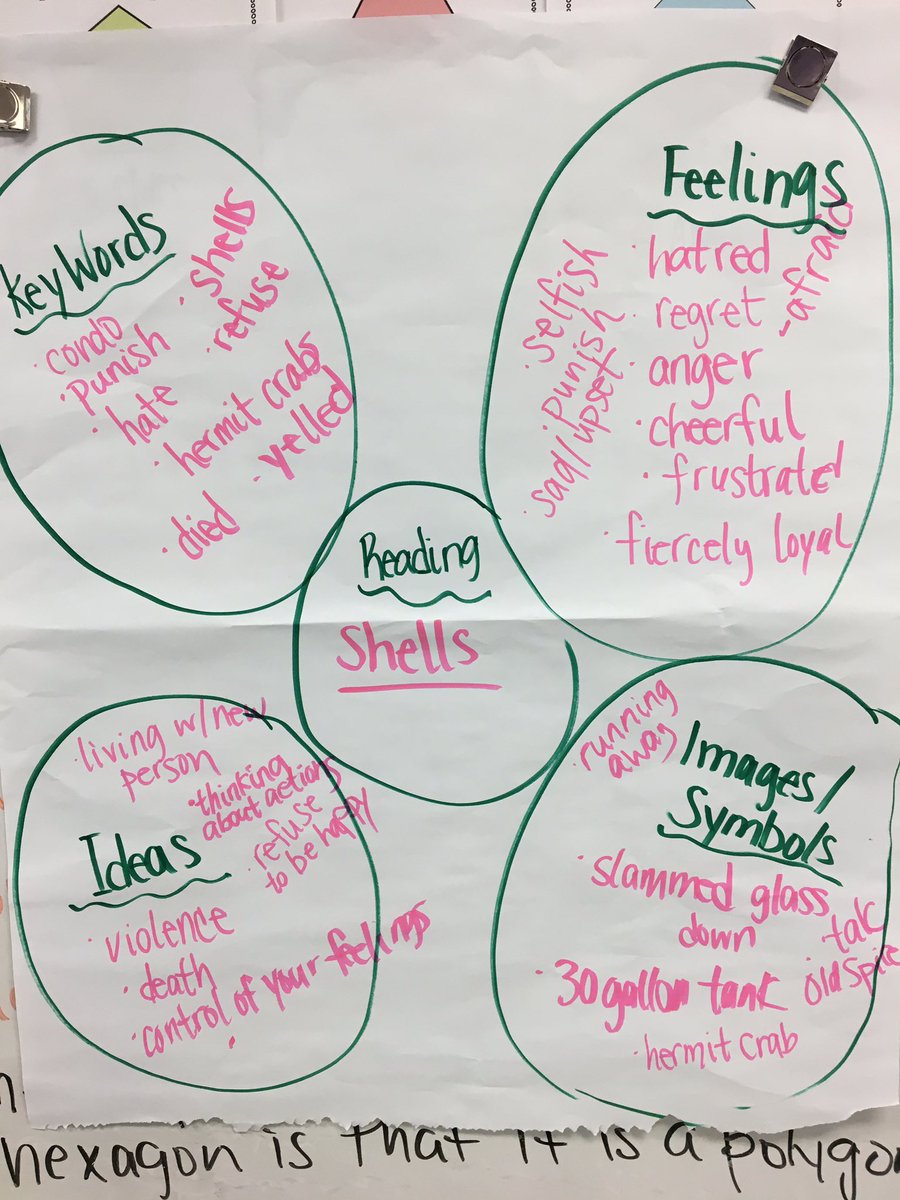 Key Words
· condo
· Punish
· hate
· shells
· refuse
· hermit crabs
· yelled
· died
Feelings
· hatred
· regret
· anger
· cheerful
· frustrated
· fiercely loyal
- afraid
· selfish
· punish
· sad/upset
Reading
Shells
Ideas
· living w/new
person
· thinking
about actions
· refuse
to be happy
· violence
· death
· control of your feelings
Images/
Symbols
· running
away
· slammed glass
down
· 30 gallon tank
talc
old Spice
· hermit crab
hexagon is that it is a polygon